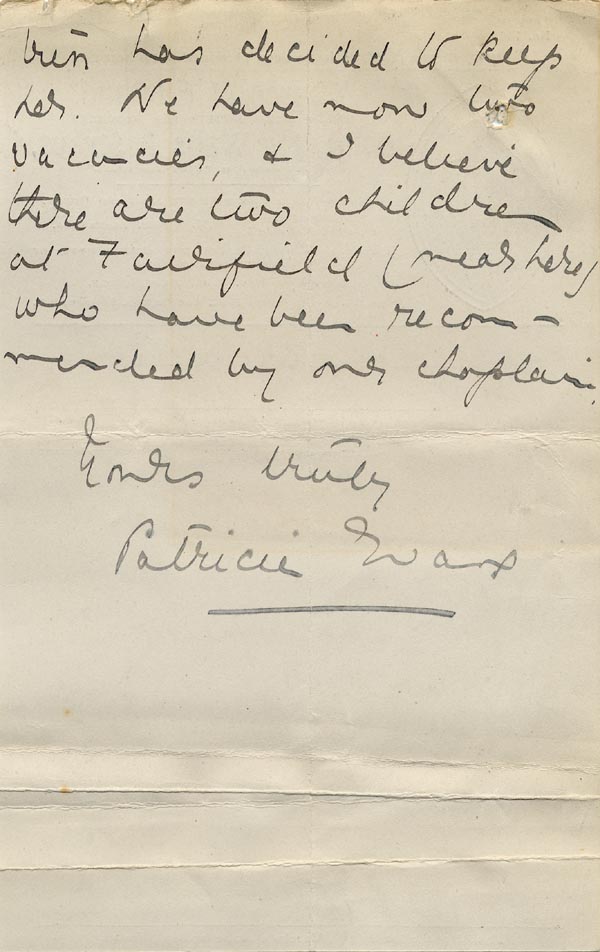 has decided to keep
her. We have now two
vacancies, & I believe
there are two children
at Fairfield (near here)
who have been recom-
mended by our chaplain.
Yours truly
Patricia Evans